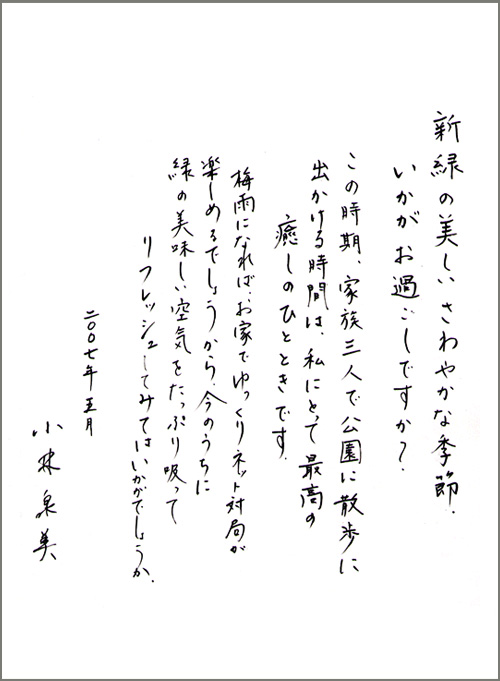 新緑の美しいさわやかな季節.
いかがお過ごしですか?.
この時期、家族三人で公園に散歩に
出かける時間は、私にとって最高の
癒しのひとときです.
梅雨になれば、お家でゆっくりネット対局が
楽しめるでしょうから、今のうちに
緑の美味しい空気をたっぷり吸って
リフレッシュしてみてはいかがでしょうか.
二〇〇七年五月
小林泉美